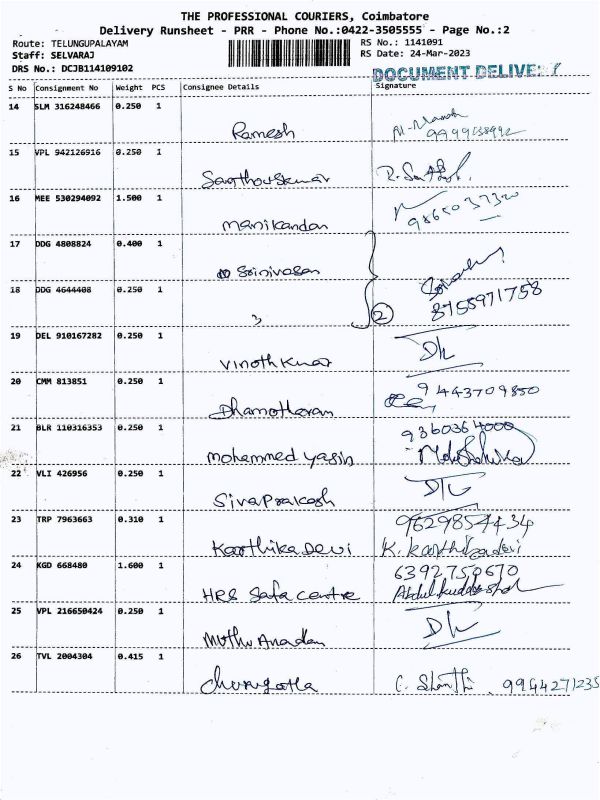 THE PROFESSIONAL COURIERS, Coimbatore
Delivery Runsheet - PRR - Phone No.:0422-3505555 - Page No.:2
Route: TELUNGUPALAYAM RS No.: 1141091
Staff: SELVARAJ RS Date: 24-Mar-2023
DRS No.: DCJB114109102 DOCUMENT DELIVERY
S No Consignment No Weight PCS Consignee Details Signature
14 SLM 316248466 0.250 1
Ramesh
15 VPL 942126916 0.250 1
16 MEE 530294092 1.500 1
Manikandan
17 DDG 4808824 0.400 1
Srinivasan
18 DDG 4644408 0.250 1
8755971758
2
19 DEL 910167282 0.250 1
Vinoth Kumar
20 CMM 813851 0.250 1
9443709850
Dhamotharan
21 BLR 110316353 0.250 1
9360364000
mohammed yasin
22 VLI 426956 0.250 1
Siva Prakash
23 TRP 7963663 0.310 1
9629854434
Karthika Devi K. Karthikadevi
24 KGD 668480 1.600 1
6392750670
HRS Safa centre
25 VPL 216650424 0.250 1
26 TVL 2004304 0.415 1
C. Shanthi. 9944271235